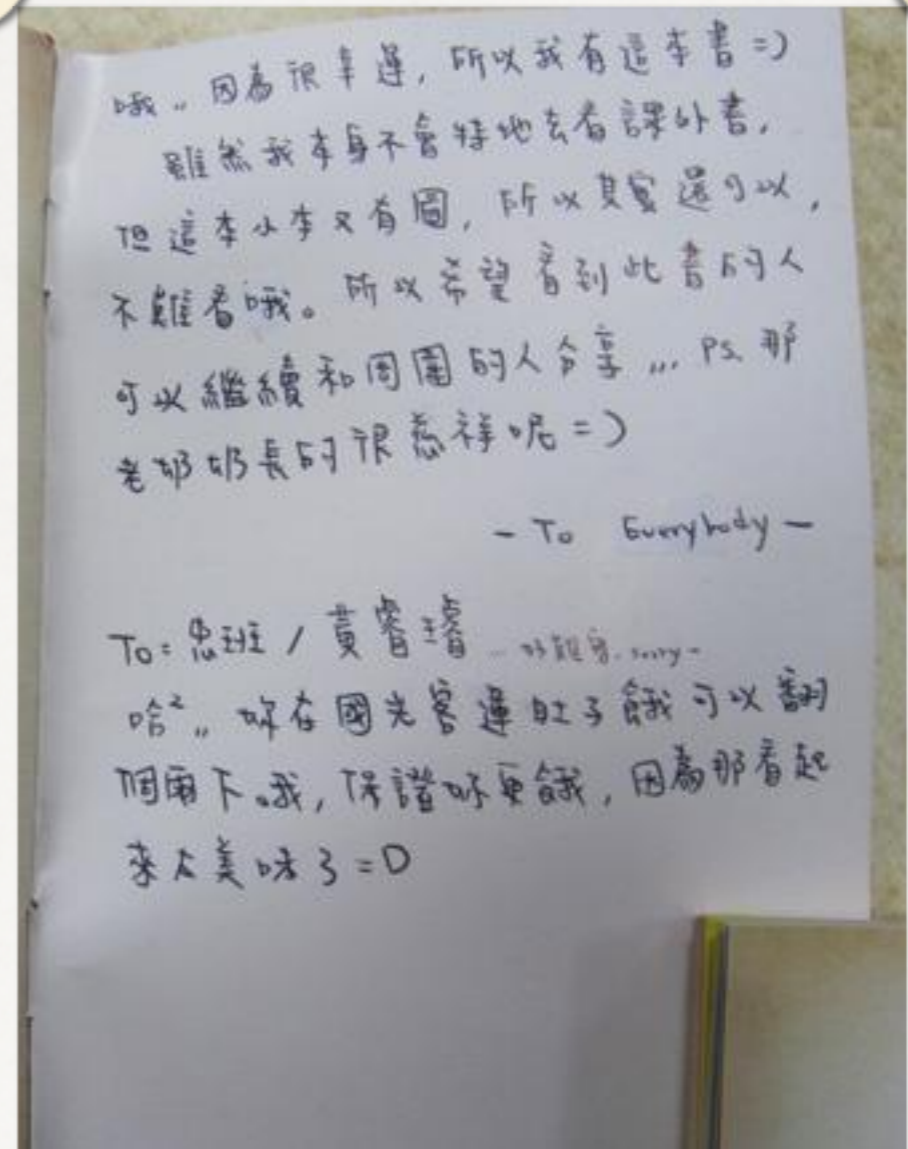 哦.. 因為很幸運, 所以我有這本書=)
雖然我本身不會特地去看課外書,
但這本小本又有圖, 所以其實還可以,
不難看哦。所以希望看到此書的人
可以繼續和周圍的人分享... PS. 那
老奶奶長的很慈祥呢=)
- To Everybody -
To= 思班 / 黃睿璿 ... 好難寫. sorry~
哈².. 妳在國光客運肚子餓可以翻
個兩下。我, 保證妳更餓, 因為那看起
來太美味了=D